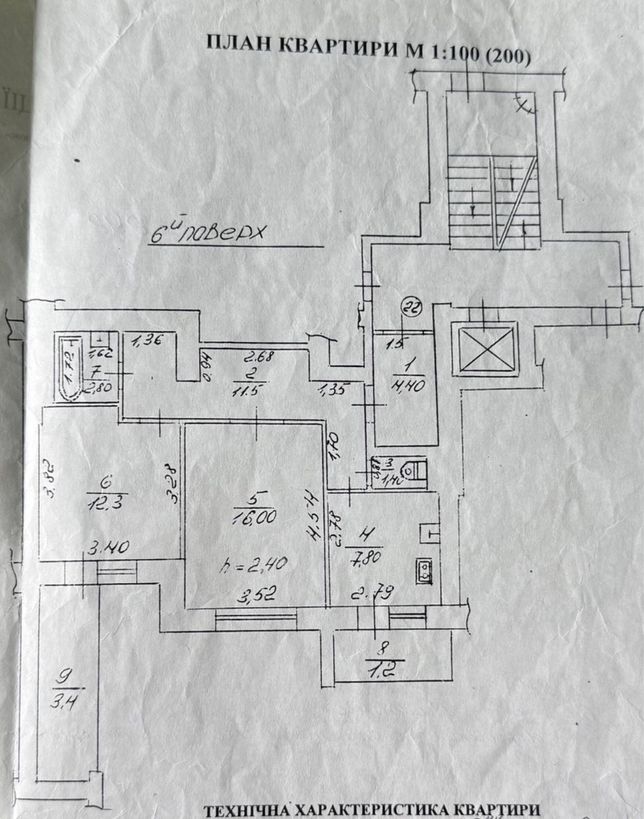 ПЛАН КВАРТИРИ М 1:100 (200)
6й поверх
22
1.5
1
4,40
1,36
1,62
1.72
7
2,80
0.94
2.68
2
11.5
1,35
1,70
0,87
3
1,40
3,82
6
12.3
3.28
3.40
5
16,00
4.54
h=2,40
3,52
2.78
4
7,80
2.79
8
1.2
9
3,4
ТЕХНІЧНА ХАРАКТЕРИСТИКА КВАРТИРИ